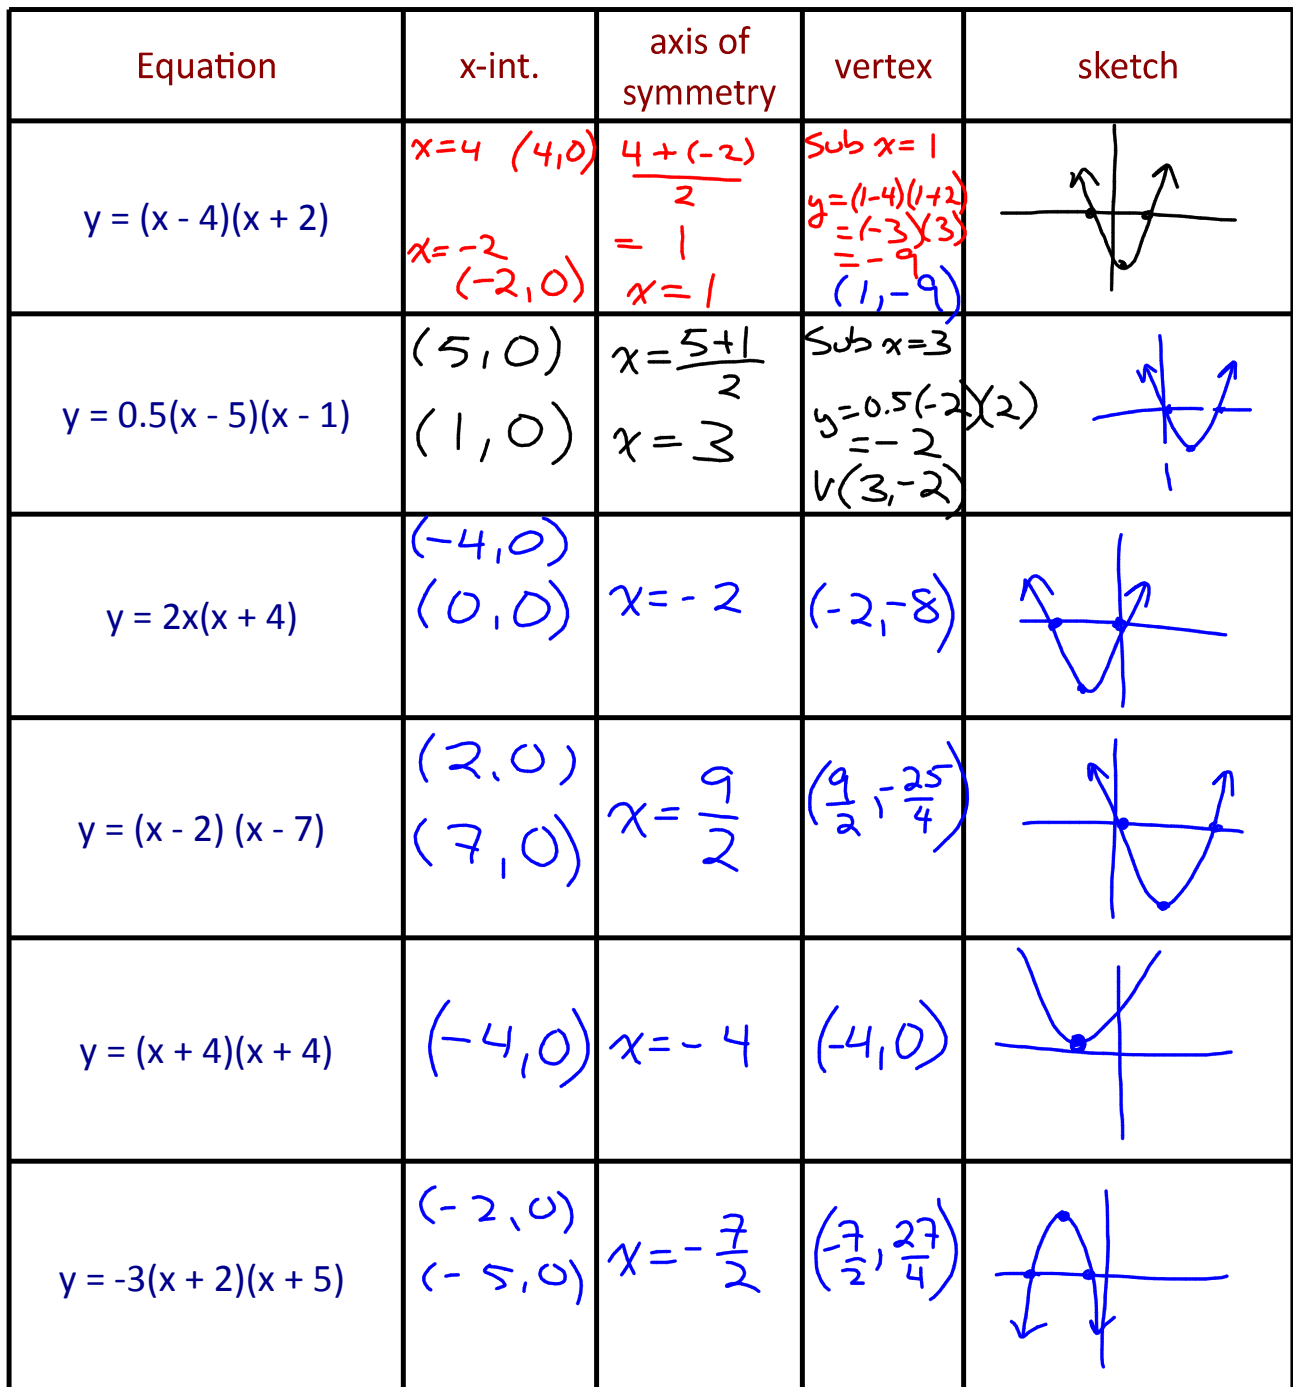 Equation
x-int.
axis of
symmetry
vertex
sketch
y = (x - 4)(x + 2)
x=4 (4,0)
x=-2
(-2,0)
4+(-2)
2
= 1
x=1
Sub x=1
y=(1-4)(1+2)
=(-3)(3)
=-9
(1,-9)
y = 0.5(x - 5)(x - 1)
(5,0)
(1,0)
x=5+1
2
x=3
Sub x=3
y=0.5(-2)(2)
=-2
V(3,-2)
y = 2x(x + 4)
(-4,0)
(0,0)
x=-2
(-2,-8)
y = (x - 2) (x - 7)
(2,0)
(7,0)
x=9/2
(9/2,-25/4)
y = (x + 4)(x + 4)
(-4,0)
x=-4
(-4,0)
y = -3(x + 2)(x + 5)
(-2,0)
(-5,0)
x=-7/2
(-7/2,27/4)